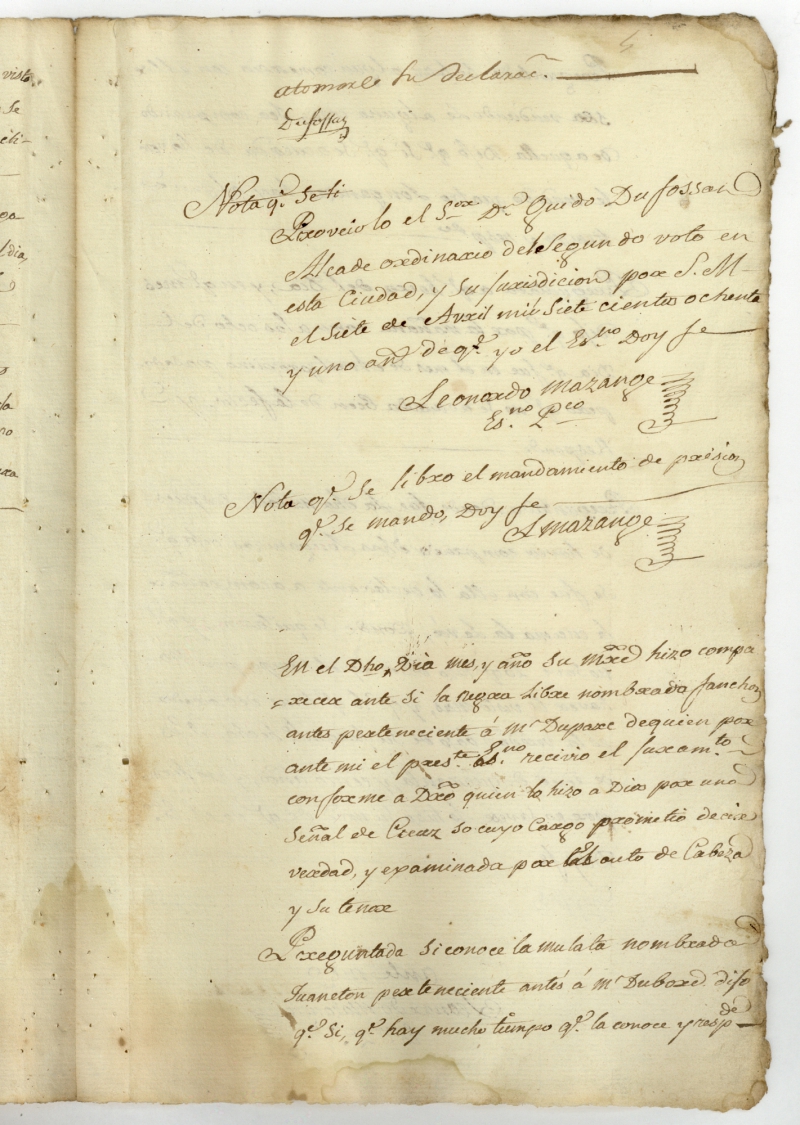 visto
se
dia,
la
no
atomarle su declarac.n
Dufossat
Nota q.e Se ti
Proveiolo el S.or D.n Guido Dufossard
Alcade ordinario del Segundo voto en
esta Ciudad, y su Jurisdicion por S. M.
el Siete de Avril mil siete cientos ochenta
y uno añ.s de q.e yo el Es.no Doy fe
Leonardo Mazange
Es.no P.co
Nota q.e se libro el mandamiento de prision
q.e se mando, Doy fe
LMazange
En el Dho, Dia mes, y año su Mrd hizo compa
=recer ante si la negra Libre nombrada fanchon
antes perteneciente á M.r Duparc de quien por
ante mi el pres.te Es.no recivio el Juram.to
conforme a Dro quien lo hizo a Dios por una
Señal de Cruz so cuyo Cargo prometio decir
verdad, y examinada por el auto de Cabeza
y su tenor
Preguntada si conoce la mulata nombrada
Juaneton perteneciente antes á M.r Dubord dijo
q.e si, q.e hay mucho tiempo q.e la conoce y resp.de